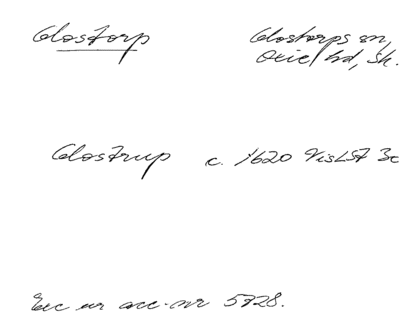 Glostorp
Glostorps sn,
Oxie hd, Sk.
Glostrup c. 1620 VisLST 3c
Exc ur acc.nr 5728.